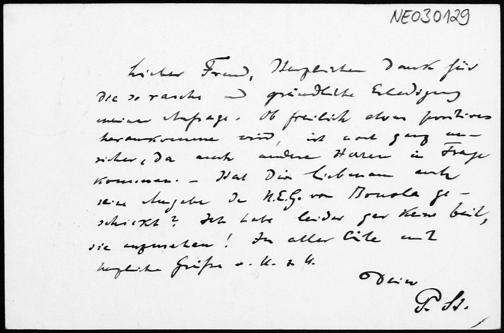 NE030129
Lieber Freund, Herzlichen Dank für
die so rasche und gründliche Erledigung
meiner Anfrage. Ob freilich etwas positives
herauskomme wird, ist noch ganz un-
sicher, da auch andere Herren in Frage
kommen. – Hat Dir Liebmann auch
seine Ausgabe der N.E.G. von Bonola ge-
schickt? Ich habe leider gar keine Zeit,
sie anzusehen! In aller Eile mit
herzliche Grüße v. H. z. H.
Dein
P. St.